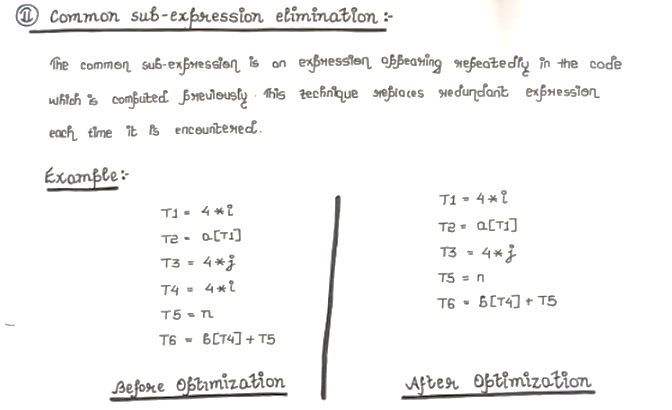 II Common sub-expression elimination :-
The common sub-expression is an expression appearing repeatedly in the code
which is computed previously. This technique replaces redundant expression
each time it is encountered.
Example:-
T1 = 4 * i
T2 = a[T1]
T3 = 4 * j
T4 = 4 * i
T5 = n
T6 = b[T4] + T5
Before Optimization
T1 = 4 * i
T2 = a[T1]
T3 = 4 * j
T5 = n
T6 = b[T4] + T5
After Optimization